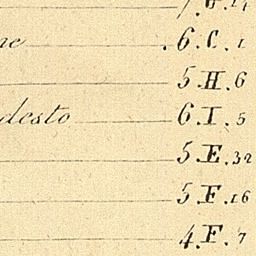 .6.C.1
5.H.6
desto 6.I.5
5.E.32
5.F.16
4.F.7